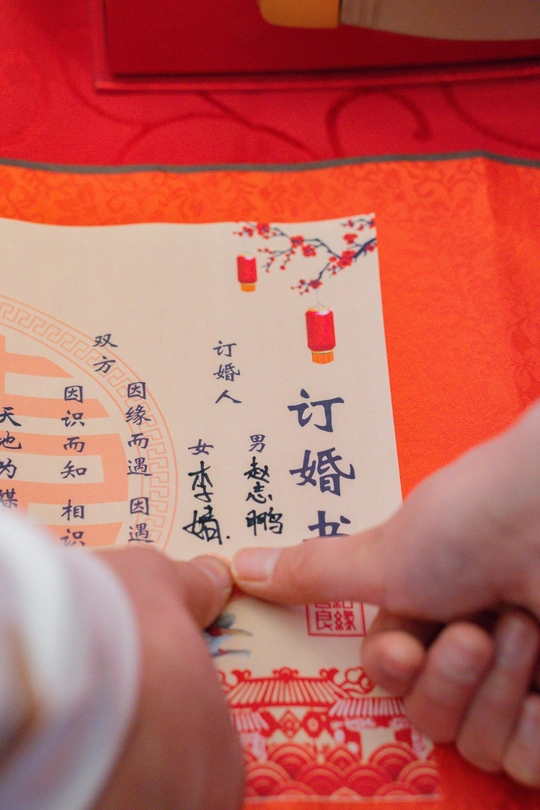 订婚书
订婚人
男 赵志鹏
女 李婧.
双方
因缘而遇 因遇
因识而知 相识
天地为媒